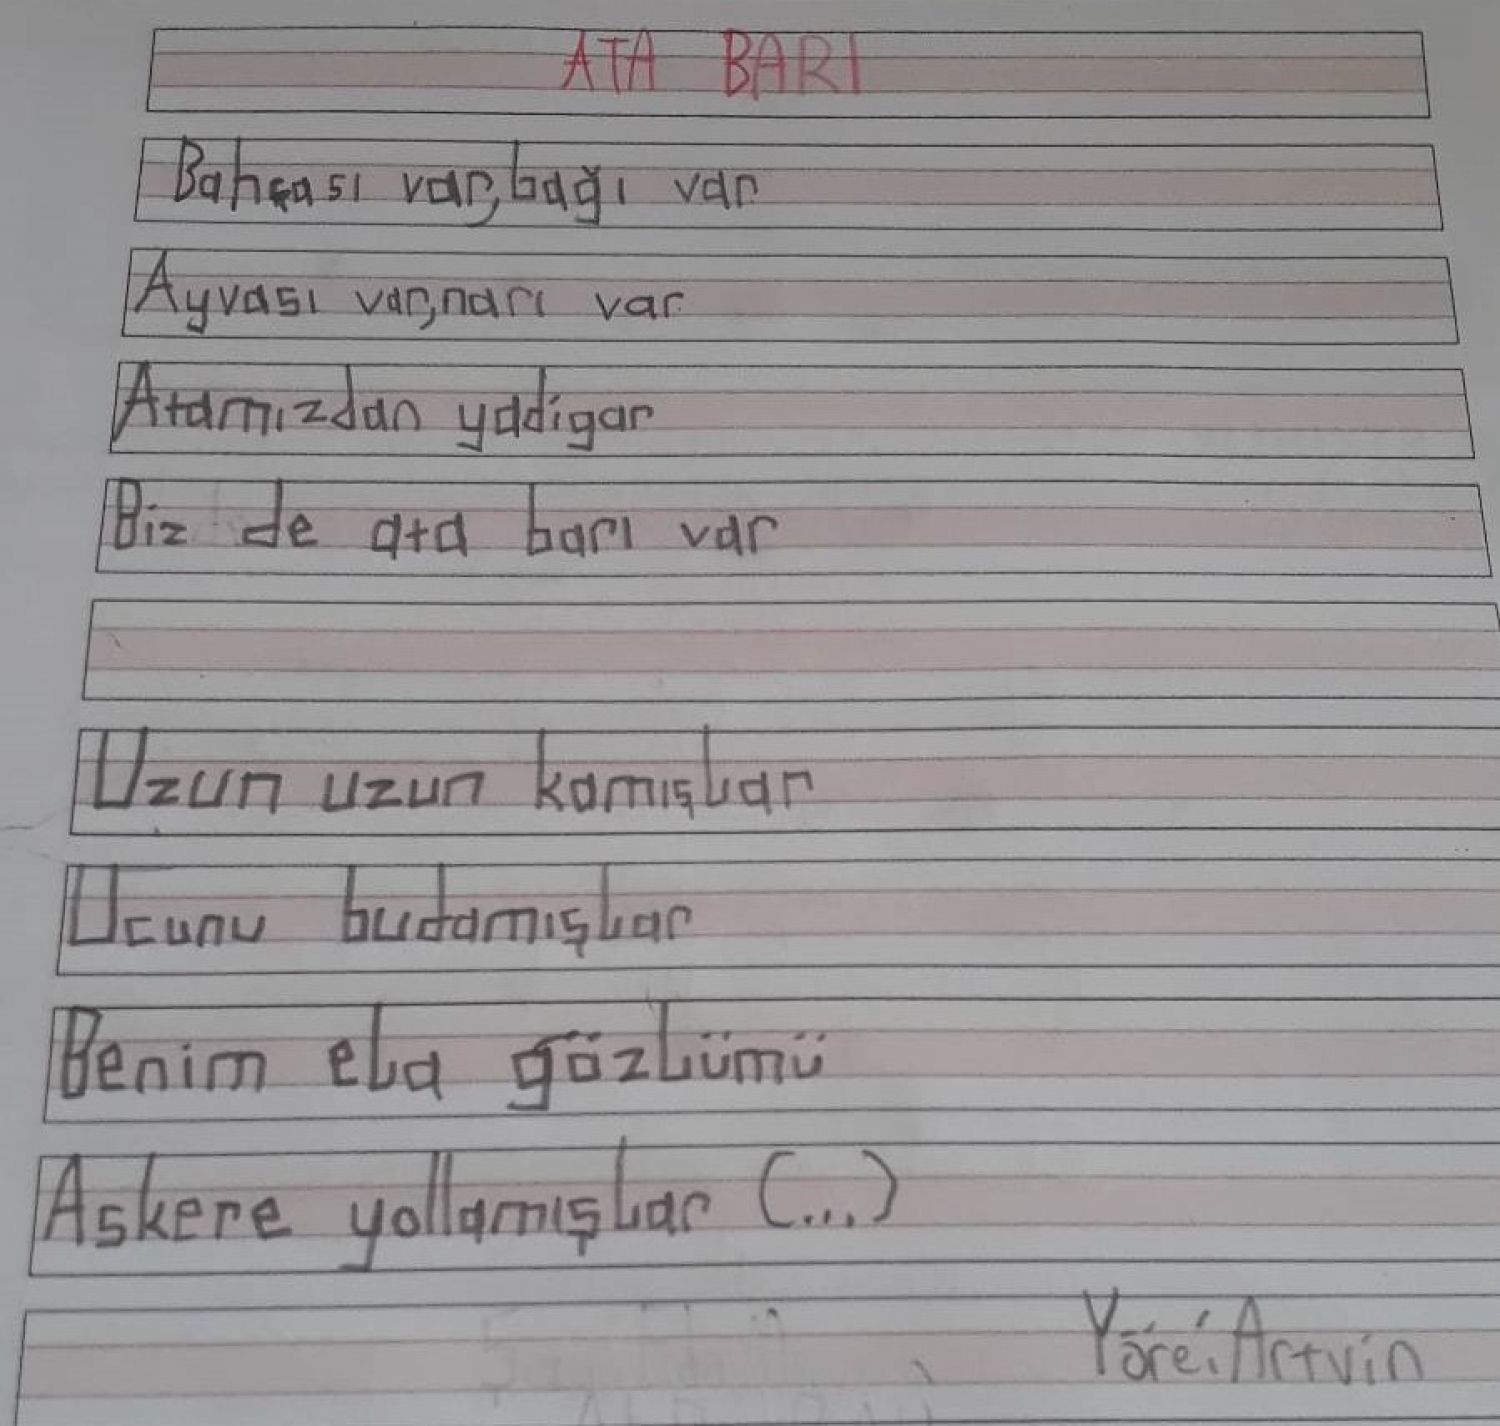 ATA BARI
Bahçası var, bağı var
Ayvası var, narı var
Atamızdan yadigar
Biz de ata barı var
Uzun uzun kamışlar
Ucunu budamışlar
Benim ela gözlümü
Askere yollamışlar (...)
Yöre: Artvin